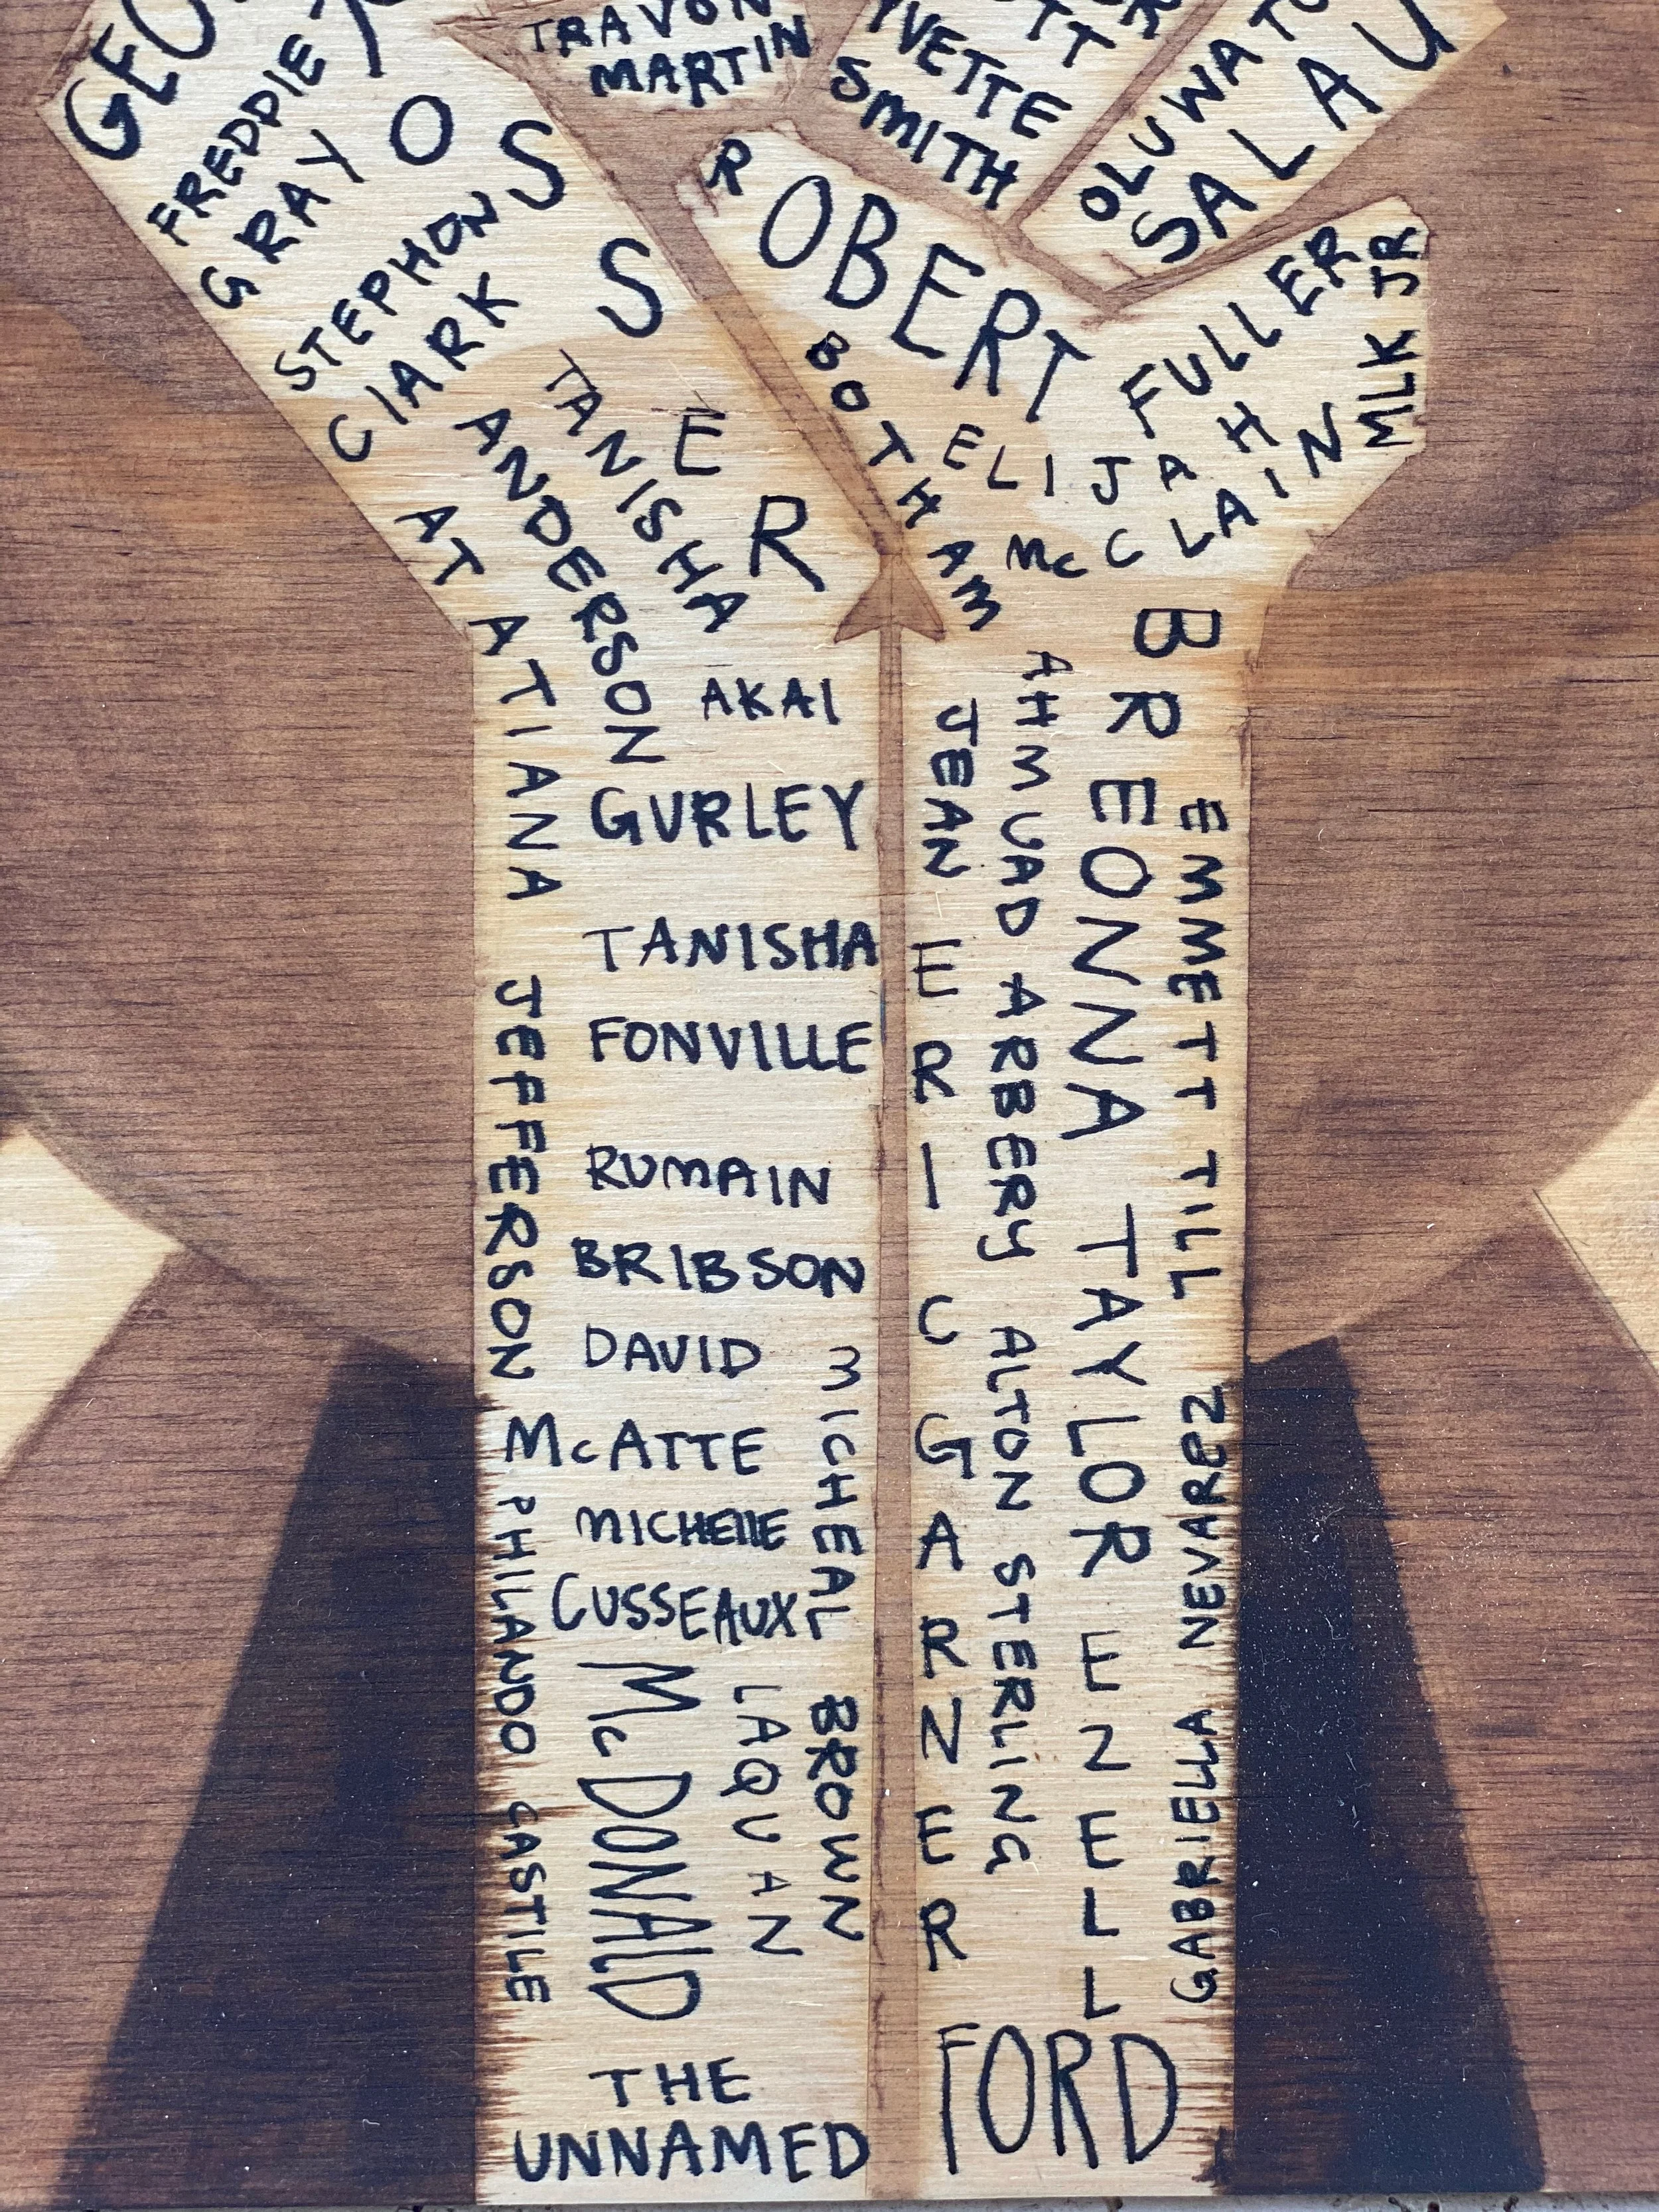 TRAVON
MARTIN
YVETTE
SMITH
OLUWAT
SALAU
FREDDIE
GRAY
STEPHON
ClARK
ROSSER
TANISHA
ANDERSON
ATATIANA
JEFFERSON
AKAI
GURLEY
TANISHA
FONVILLE
RUMAIN
BRIBSON
DAVID
McATTE
MICHEllE
CUSSEAUX
MICHEAL
BROWN
LAQUAN
McDONAlD
PHILANDO CASTILE
THE
UNNAMED
ROBERT
FULLER
MLK JR
ELIJAH
McCLAIN
BOTHAM
JEAN
ERIC GARNER
AHMUAD ARBERY
ALTON STERLING
BREONNA TAYLOR
EZELL
FORD
EMMETT TILL
GABRIELLA NEVAREZ